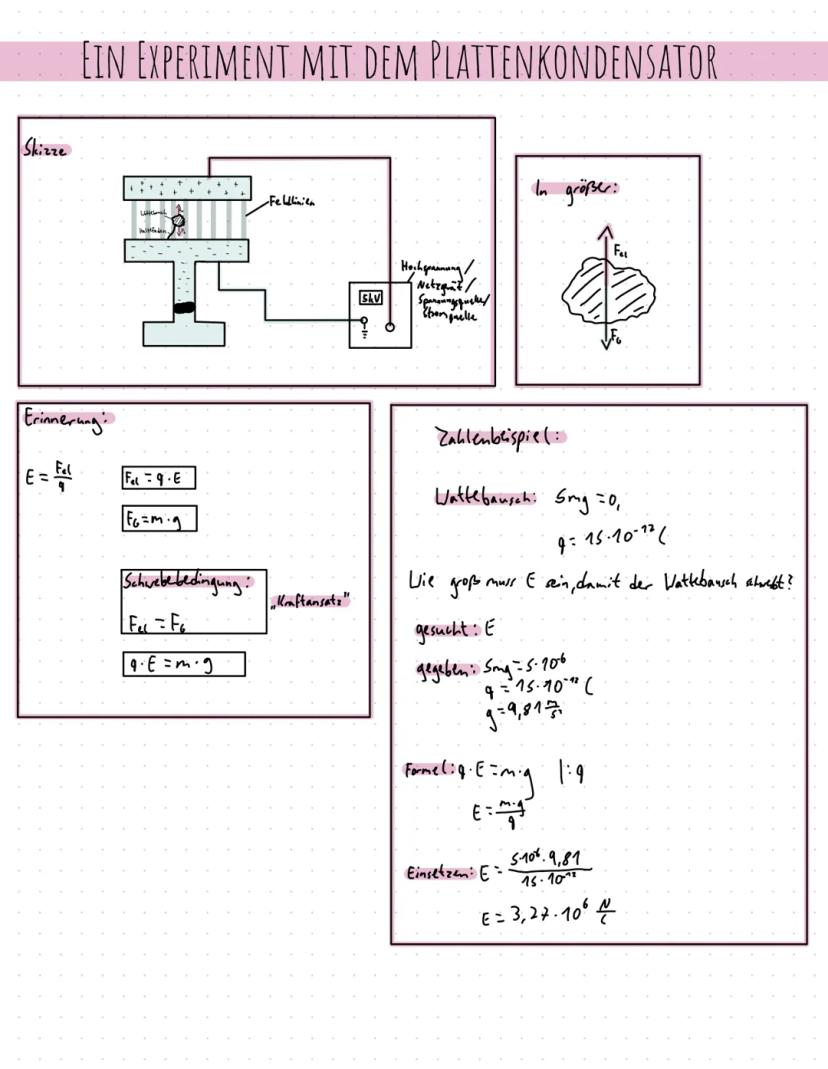 EIN EXPERIMENT MIT DEM PLATTENKONDENSATOR
Skizze
Feldlinien
Wattebausch
Hochspannung/
Netzgerät/
Spannungsquelle/
Stromquelle
5kV
In größer:
Fel
FG
Erinnerung:
E = Fel/q
Fel = q · E
FG = m · g
Schwebebedingung:
Fel = FG
„Kraftansatz"
q · E = m · g
Zahlenbeispiel:
Wattebausch: 5mg = 0,
q = 15 · 10⁻¹² C
Wie groß muss E sein, damit der Wattebausch schwebt?
gesucht: E
gegeben: 5mg = 5 · 10⁶
q = 15 · 10⁻¹² C
g = 9,81 m/s²
Formel: q · E = m · g |: q
E = m·g/q
Einsetzen: E = 5·10⁶ · 9,81/15 · 10⁻¹²
E = 3,27 · 10⁶ N/C